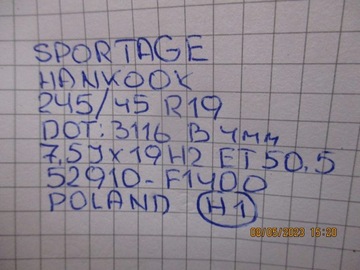 SPORTAGE
HANKOOK
245/45 R19
DOT: 3116 B 4mm
7,5JX19H2 ET50.5
52910-F1400
POLAND H1
09/05/2023 15:20